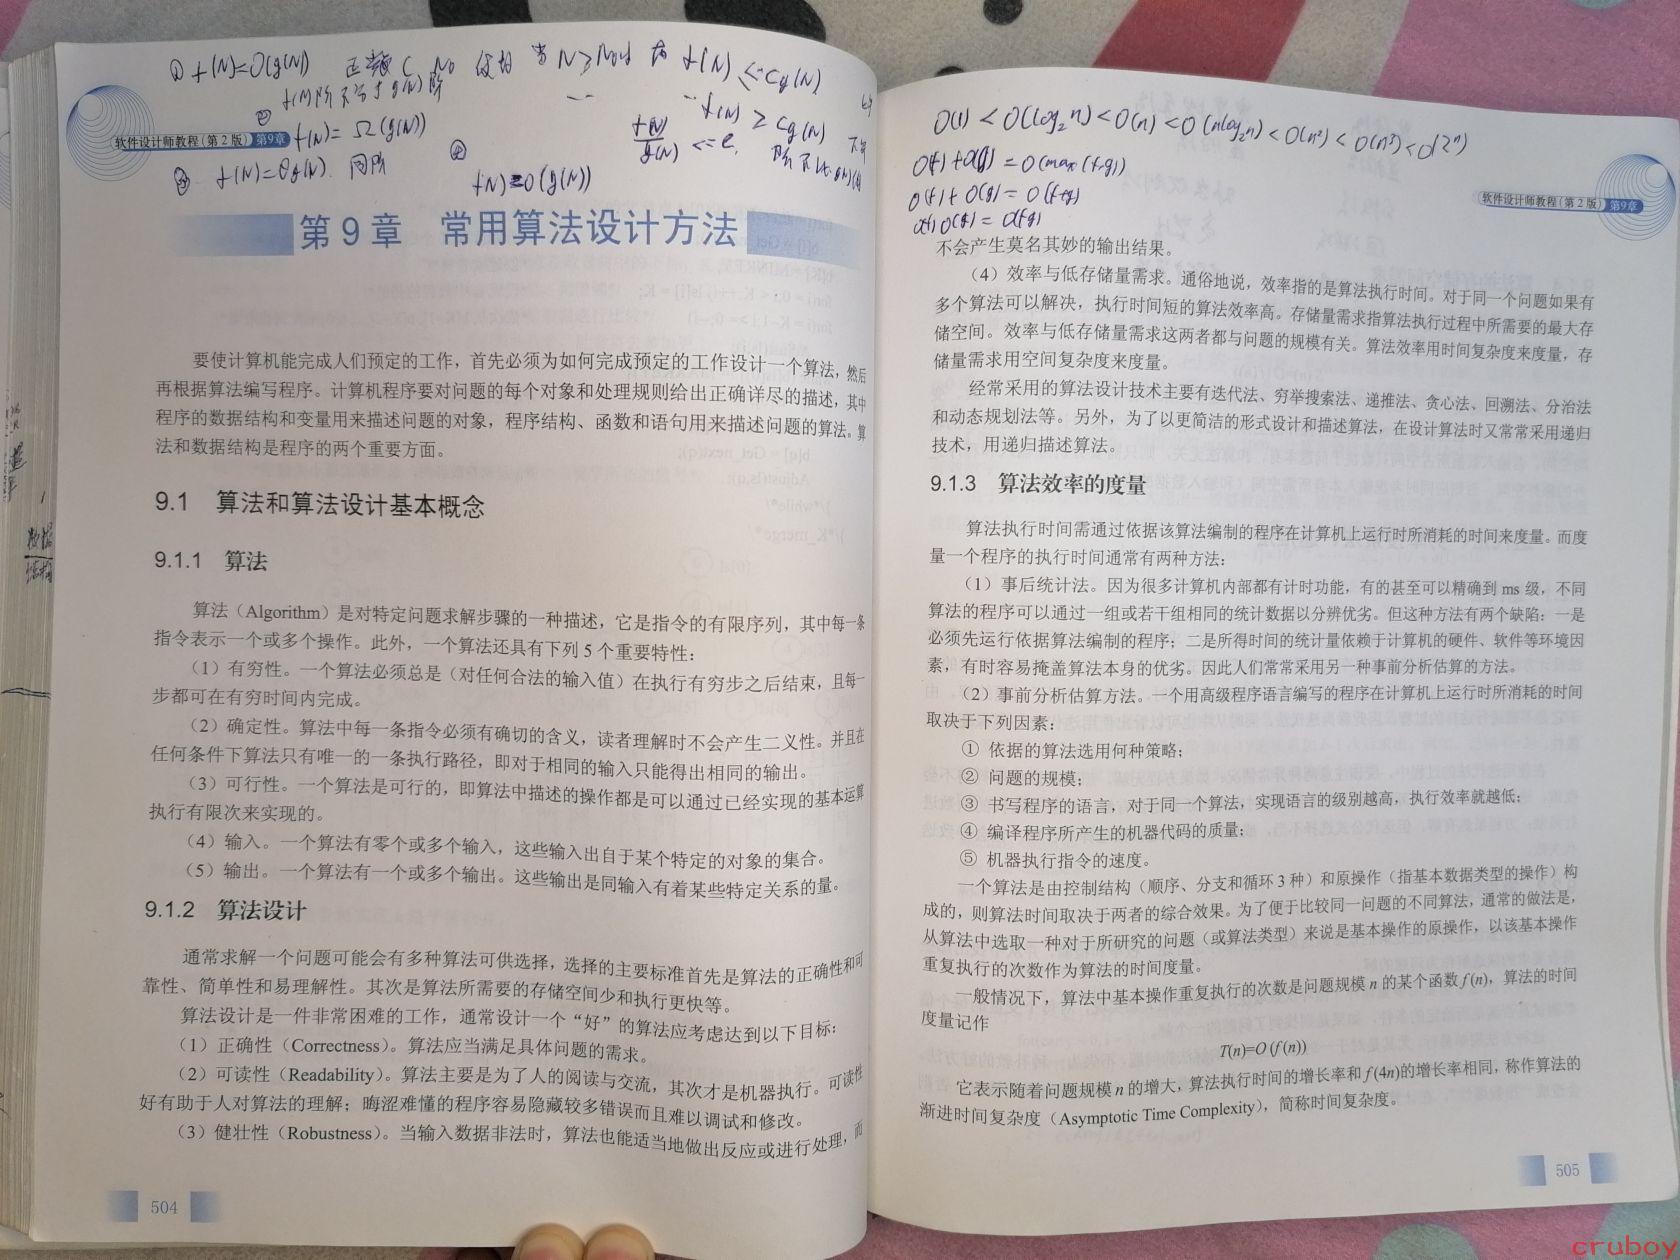 ① f(N)=O(g(N)) 正常数 C N0 使得 当 N≥N0时 有 f(N)≤Cg(N)
f(N)阶不高于g(N)阶
② f(N)=Ω(g(N)) f(N) ≥ Cg(N)
③ f(N)=θg(N). 同阶
④ f(N)=o(g(N)) f(N)/g(N) <=ε.
软件设计师教程(第2版) 第9章
第9章 常用算法设计方法
要使计算机能完成人们预定的工作，首先必须为如何完成预定的工作设计一个算法，然后
再根据算法编写程序。计算机程序要对问题的每个对象和处理规则给出正确详尽的描述，其中
程序的数据结构和变量用来描述问题的对象，程序结构、函数和语句用来描述问题的算法。算
法和数据结构是程序的两个重要方面。
9.1 算法和算法设计基本概念
9.1.1 算法
算法（Algorithm）是对特定问题求解步骤的一种描述，它是指令的有限序列，其中每一条
指令表示一个或多个操作。此外，一个算法还具有下列5个重要特性：
（1）有穷性。一个算法必须总是（对任何合法的输入值）在执行有穷步之后结束，且每一
步都可在有穷时间内完成。
（2）确定性。算法中每一条指令必须有确切的含义，读者理解时不会产生二义性。并且在
任何条件下算法只有唯一的一条执行路径，即对于相同的输入只能得出相同的输出。
（3）可行性。一个算法是可行的，即算法中描述的操作都是可以通过已经实现的基本运算
执行有限次来实现的。
（4）输入。一个算法有零个或多个输入，这些输入出自于某个特定的对象的集合。
（5）输出。一个算法有一个或多个输出。这些输出是同输入有着某些特定关系的量。
9.1.2 算法设计
通常求解一个问题可能会有多种算法可供选择，选择的主要标准首先是算法的正确性和可
靠性、简单性和易理解性。其次是算法所需要的存储空间少和执行更快等。
算法设计是一件非常困难的工作，通常设计一个“好”的算法应考虑达到以下目标：
（1）正确性（Correctness）。算法应当满足具体问题的需求。
（2）可读性（Readability）。算法主要是为了人的阅读与交流，其次才是机器执行。可读性
好有助于人对算法的理解；晦涩难懂的程序容易隐藏较多错误而且难以调试和修改。
（3）健壮性（Robustness）。当输入数据非法时，算法也能适当地做出反应或进行处理，而
504
数据
结构
O(1)<O(log₂n)<O(n)<O(nlog₂n)<O(n²)<O(n³)<O(2ⁿ)
O(f)+O(g)=O(max(f,g))
O(f)+O(g)=O(f+g)
O(f)O(g)=O(fg)
软件设计师教程(第2版) 第9章
不会产生莫名其妙的输出结果。
（4）效率与低存储量需求。通俗地说，效率指的是算法执行时间。对于同一个问题如果有
多个算法可以解决，执行时间短的算法效率高。存储量需求指算法执行过程中所需要的最大存
储空间。效率与低存储量需求这两者都与问题的规模有关。算法效率用时间复杂度来度量，存
储量需求用空间复杂度来度量。
经常采用的算法设计技术主要有迭代法、穷举搜索法、递推法、贪心法、回溯法、分治法
和动态规划法等。另外，为了以更简洁的形式设计和描述算法，在设计算法时又常常采用递归
技术，用递归描述算法。
9.1.3 算法效率的度量
算法执行时间需通过依据该算法编制的程序在计算机上运行时所消耗的时间来度量。而度
量一个程序的执行时间通常有两种方法：
（1）事后统计法。因为很多计算机内部都有计时功能，有的甚至可以精确到 ms 级，不同
算法的程序可以通过一组或若干组相同的统计数据以分辨优劣。但这种方法有两个缺陷：一是
必须先运行依据算法编制的程序；二是所得时间的统计量依赖于计算机的硬件、软件等环境因
素，有时容易掩盖算法本身的优劣。因此人们常常采用另一种事前分析估算的方法。
（2）事前分析估算方法。一个用高级程序语言编写的程序在计算机上运行时所消耗的时间
取决于下列因素：
① 依据的算法选用何种策略；
② 问题的规模；
③ 书写程序的语言，对于同一个算法，实现语言的级别越高，执行效率就越低；
④ 编译程序所产生的机器代码的质量；
⑤ 机器执行指令的速度。
一个算法是由控制结构（顺序、分支和循环3种）和原操作（指基本数据类型的操作）构
成的，则算法时间取决于两者的综合效果。为了便于比较同一问题的不同算法，通常的做法是，
从算法中选取一种对于所研究的问题（或算法类型）来说是基本操作的原操作，以该基本操作
重复执行的次数作为算法的时间度量。
一般情况下，算法中基本操作重复执行的次数是问题规模 n 的某个函数 f(n)，算法的时间
度量记作
T(n)=O (f (n))
它表示随着问题规模 n 的增大，算法执行时间的增长率和 f(4n)的增长率相同，称作算法的
渐进时间复杂度（Asymptotic Time Complexity），简称时间复杂度。
505
cruboy